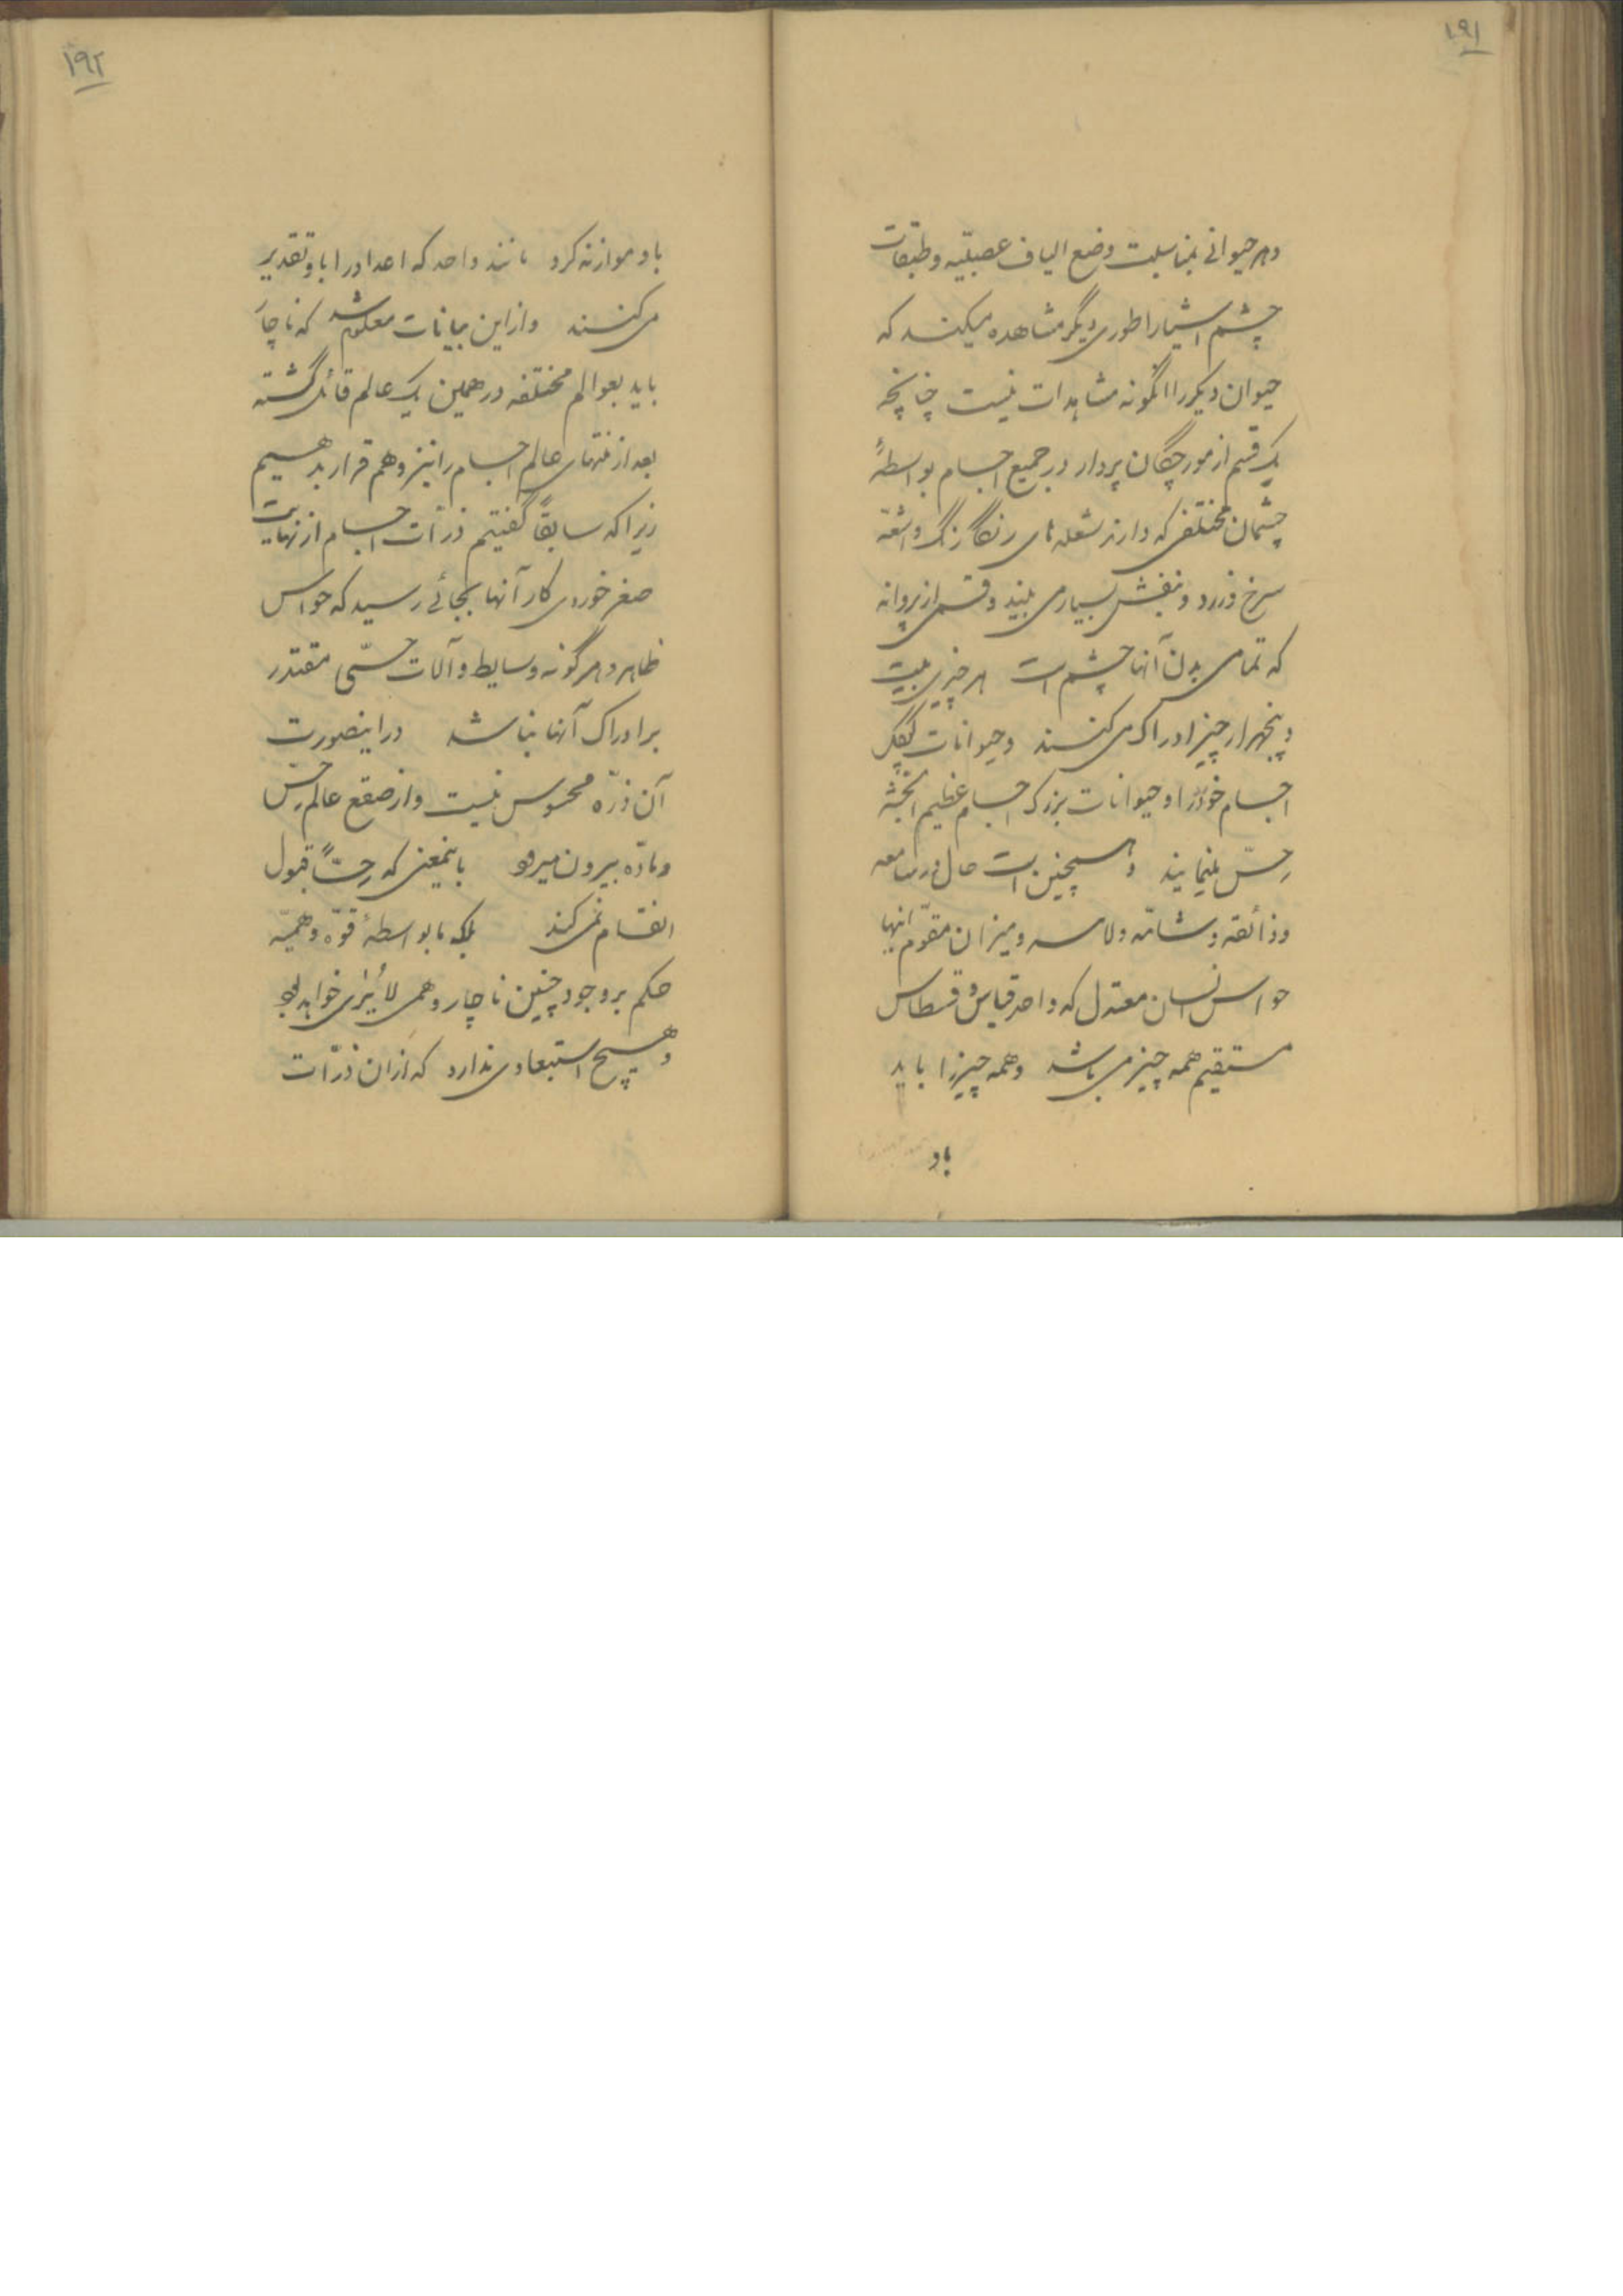 ۱۹۱
و هر حیوانی بمناسبت وضع الیاف عصبیّه و طبقات
چشم اشیا را طوری دیگر مشاهده میکند که
حیوان دیگر را انگونه مشاهدات نیست چنانچه
یک قسم از مورچگان پردار در جمیع اجسام بواسطهٔ
چشمان مختلفی که دارند شعله های رنگارنگ و اشعّه
سرخ و زرد و بنفش بسیار می بینند و قسمی از پروانه
که تمامی بدن آنها چشم است هر چیزی بیست
و پنجهزار چیز ادراک می کنند و حیوانات کوچک
اجسام خورد را و حیوانات بزرگ اجسام عظیم الجثّه
حسّ مینمایند و همچنین است حال در سامعه
و ذائقه و شامّه و لامسه و میزان مقوّم انها
حواس انسان معتدل که واحد قیاس و قسطاس
مستقیم همه چیز می باشد و همه چیز را باید
باو
۱۹۲
باو موازنه کرد مانند واحد که اعداد را باو تقدیر
می کنند و از این بیانات معلوم شد که ناچار
باید بعوالم مختلفه در همین یک عالم قائل گشته
بعد از منتهای عالم اجسام را نیز وهم قرار بدهیم
زیرا که سابقاً گفتیم ذرّات اجسام از نهایت
صغر خوردی کار آنها بجائی رسید که حواس
ظاهر و هر گونه وسایط و آلات حسّی مقتدر
بر ادراک آنها نباشد در اینصورت
آن ذرّه محسوس نیست و از صقع عالم حسّ
و مادّه بیرون میرود باینمعنی که حسّاً قبول
انقسام نمی کند بلکه ما بواسطهٔ قوّه وهمیّه
حکم بر وجود چنین ناچار وهمی لایُرٰی خواهد بود
و هیچ استبعادی ندارد که از ان ذرّات